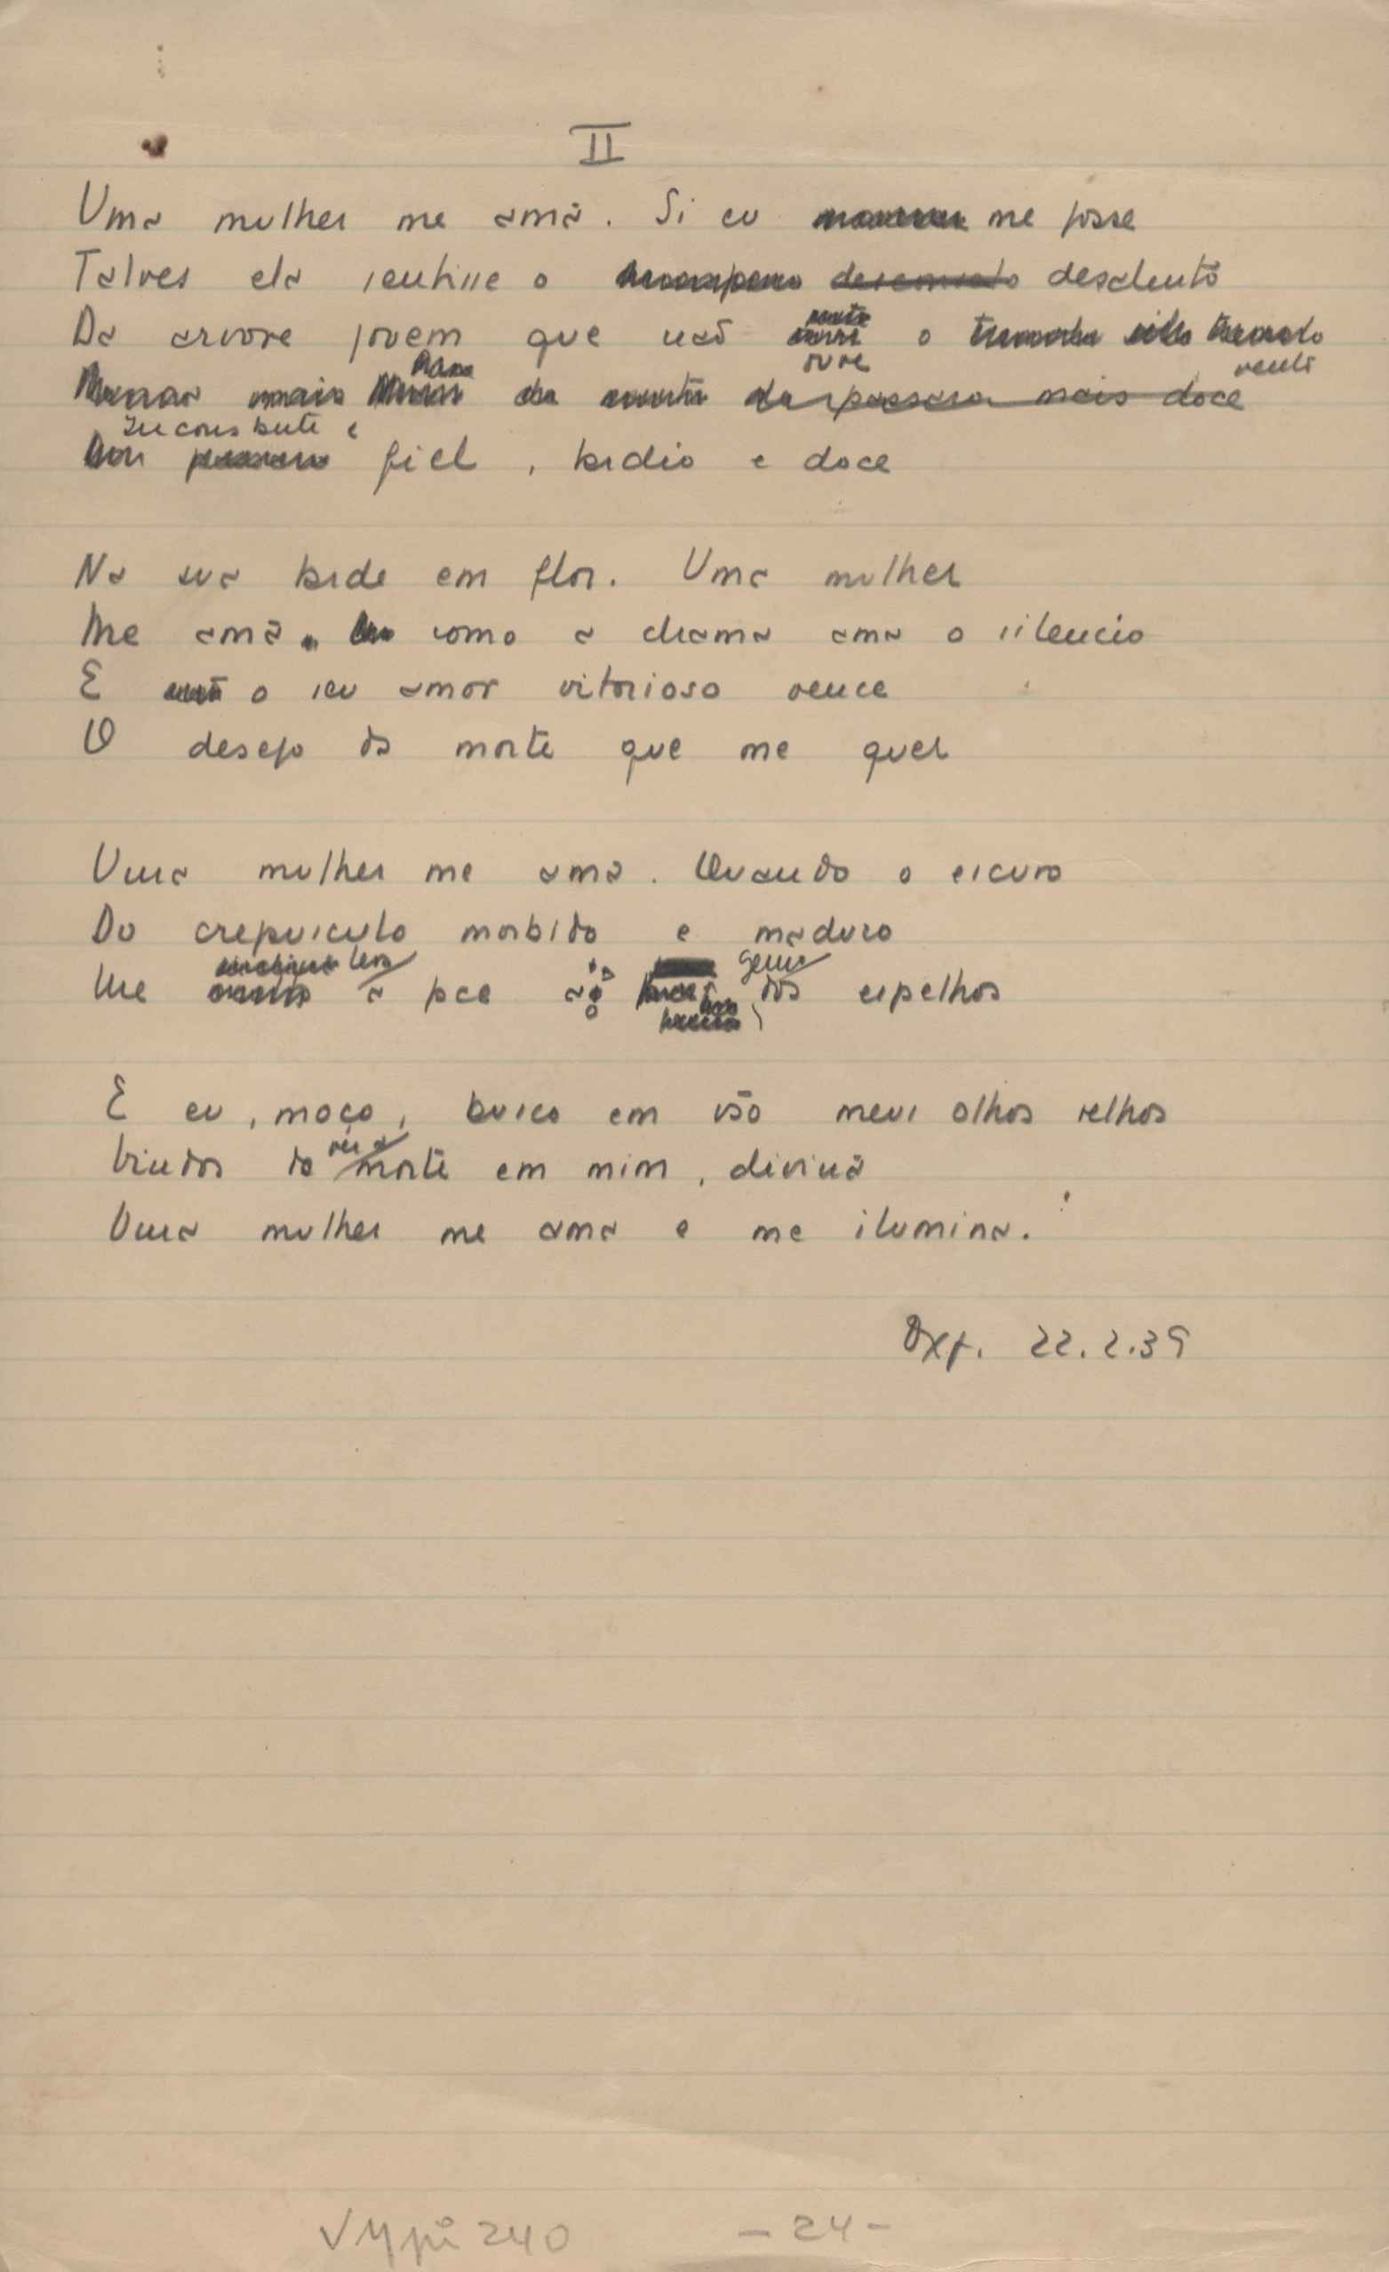 II
Uma mulher me ama. Si eu me fosse
Talves ela sentisse o desalento
Da arvore jovem que não ouve o
vento
Inconstante e
fiel, tardio e doce
Na sua tarde em flor. Uma mulher
Me ama como a chama ama o silencio
E o seu amor vitorioso vence
O desejo da morte que me quer
Uma mulher me ama. Quando o escuro
Do crepusculo morbido e maduro
Me leva a face ao genio dos espelhos
E eu, moço, busco em vão meus olhos velhos
Vindos de ver a morte em mim, divina
Uma mulher me ama e me ilumina.
Oxf. 22.2.39
VMpi 240 - 24 -